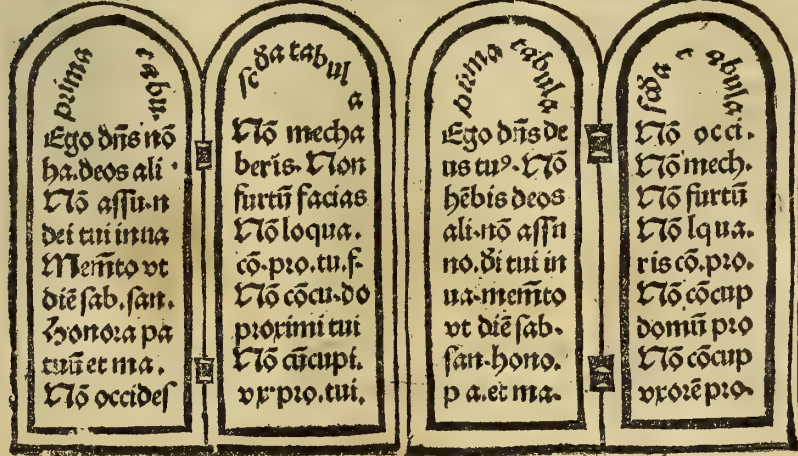 prima tabu.
Ego dn̄s nō
ha.deos ali.
Nō aſſu.n
dei tui in ua
Mem̄to vt
diē ſab.ſan.
Honora pa
tuū et ma.
Nō occideſ
ſcd̄a tabula
Nō mecha
beris. Non
furtū facias
Nō loqua.
cō.pro.tu.f.
Nō cōcu.do
proximi tui
Nō cūcupi.
vx.pro.tui.
prima tabula
Ego dn̄s de
us tuꝰ. Nō
hēbis deos
ali.nō aſſu
no.d̄i tui in
ua.mem̄to
vt diē ſab.
ſan.hono.
p a.et ma.
ſcd̄a tabula
Nō occi.
Nō mech.
Nō furtū
Nō lqua.
ris cō.pro.
Nō cōcup
domū pro
Nō cōcup
vxorē pro.